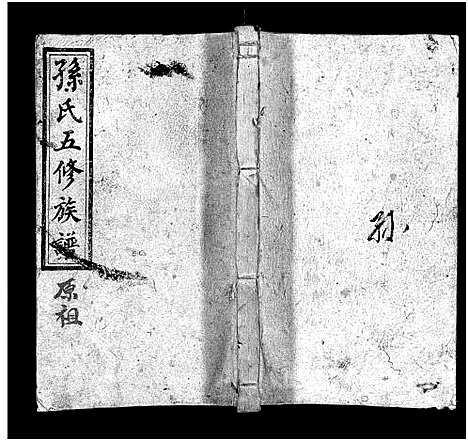 孫氏五修族譜
原祖
孙